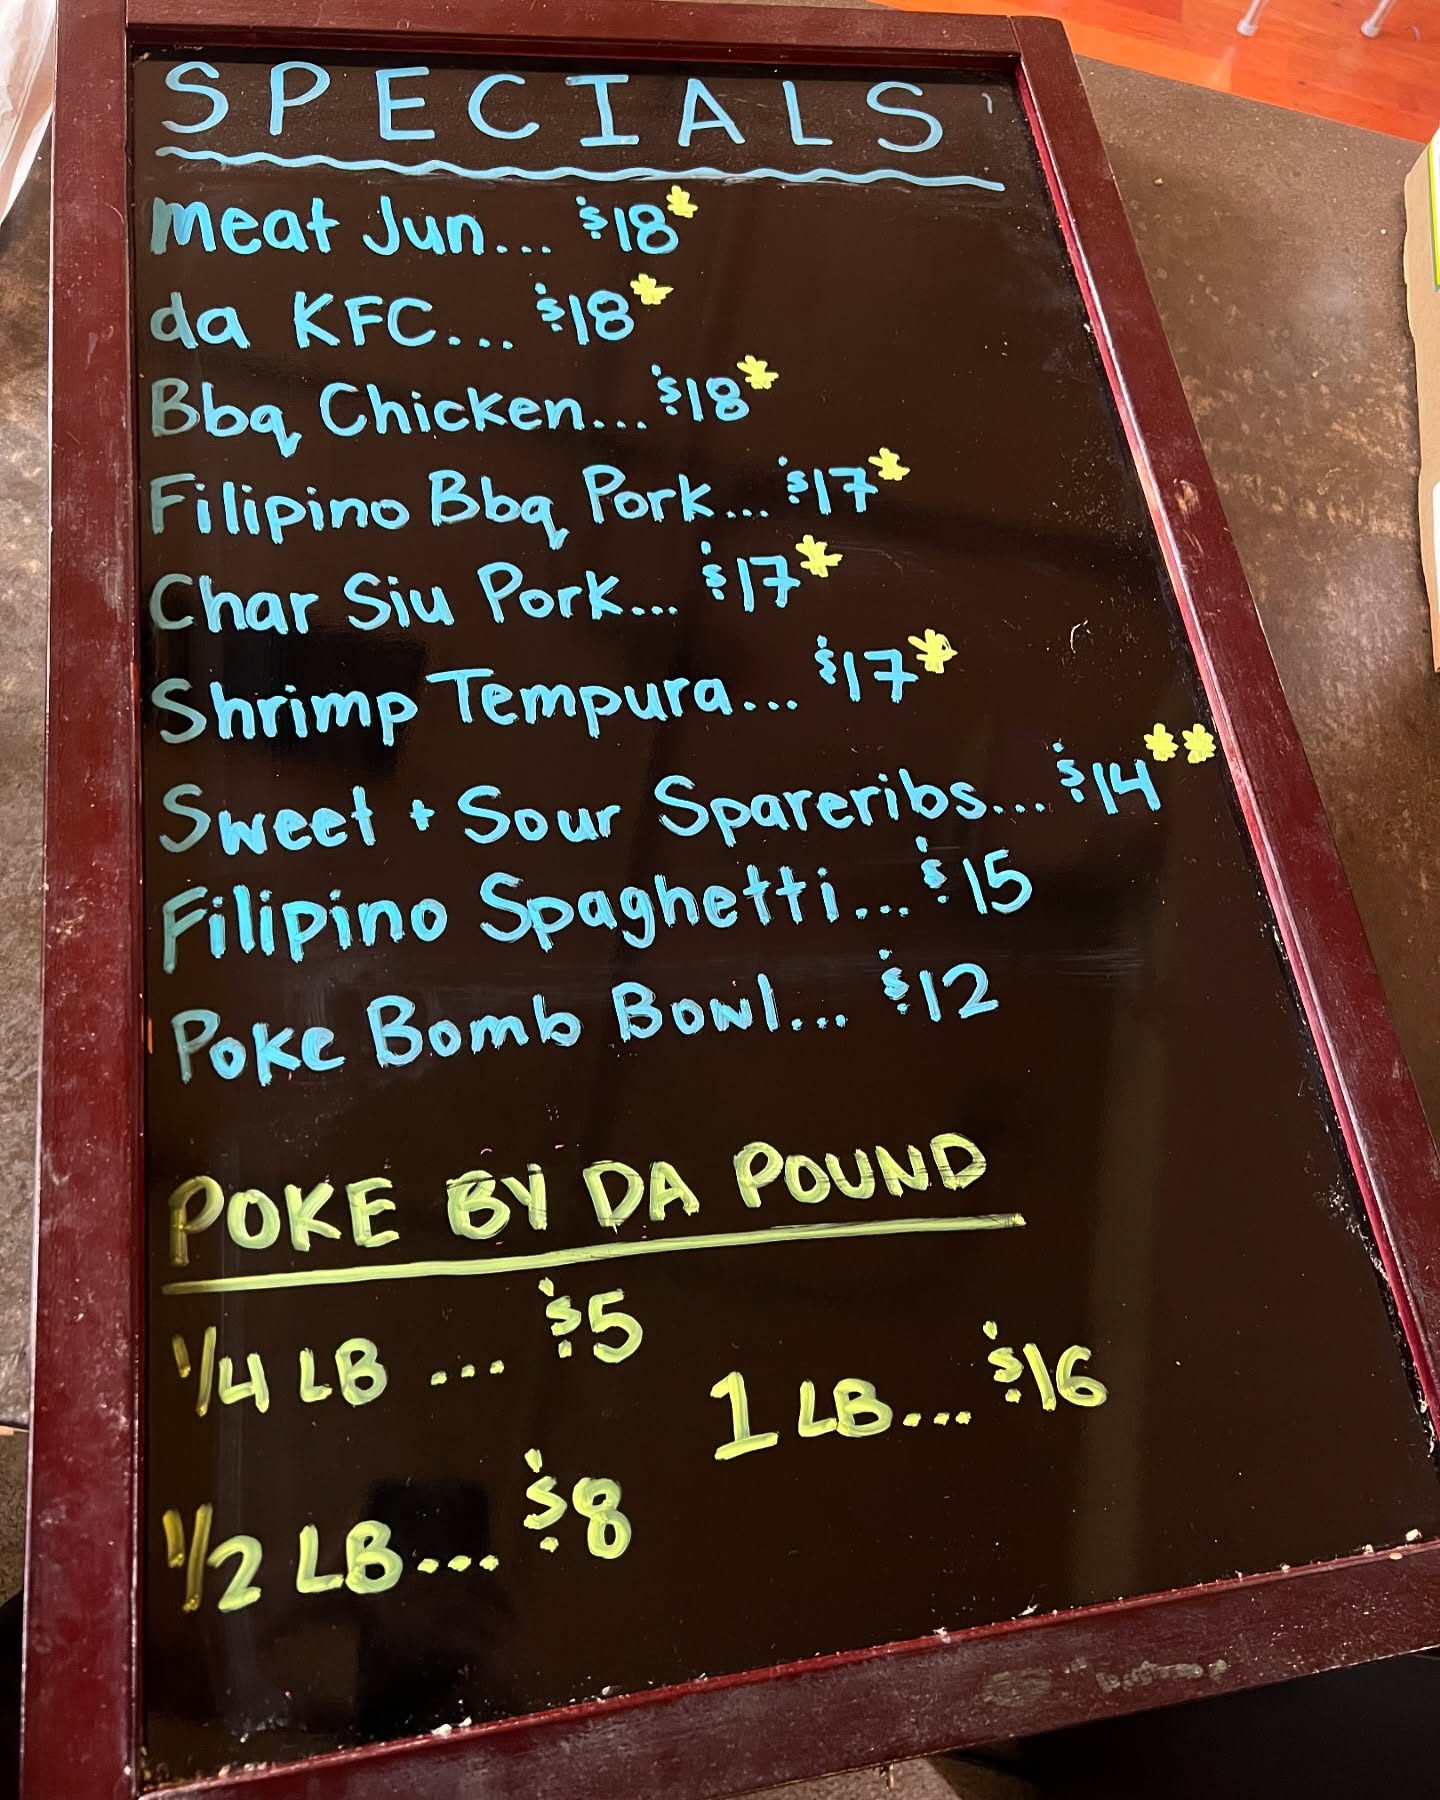 SPECIALS
Meat Jun... $18*
da KFC... $18*
Bbq Chicken... $18*
Filipino Bbq Pork... $17*
Char Siu Pork... $17*
Shrimp Tempura... $17*
Sweet + Sour Spareribs... $14**
Filipino Spaghetti... $15
Poke Bomb Bowl... $12
POKE BY DA POUND
1/4 LB ... $5
1 LB... $16
1/2 LB... $8